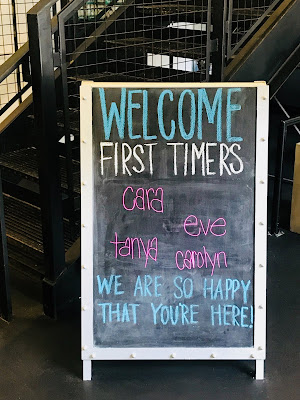 WELCOME
FIRST TIMERS
cara
eve
tanya
carolyn
WE ARE SO HAPPY
THAT YOU'RE HERE!